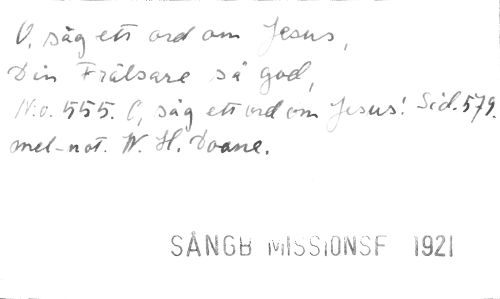 O, säg ett ord om Jesus,
Din Frälsare så god,
N:o. 555. O, säg ett ord om Jesus! Sid. 579.
mel-not. W. H. Doane.
SÅNGB MISSIONSF 1921